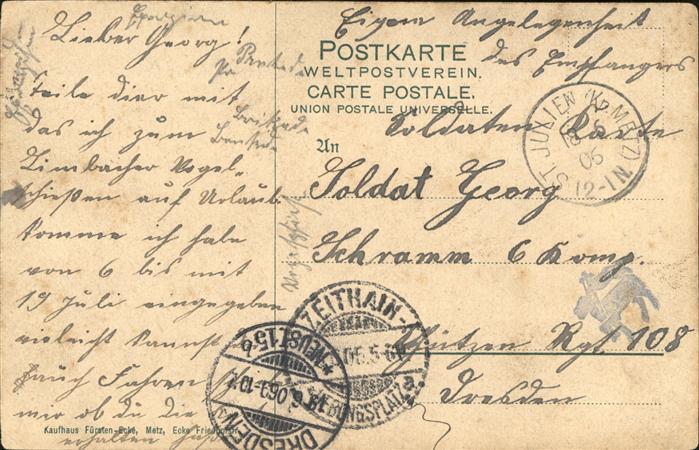 Lieber Georg!
Teile dier mit
das ich zum
Limbacher Vogel-
schießen auf Urlaub
komme ich habe
von 6 bis mit
19 Juli eingegeben
vieleicht kannst
auch Fahren
mir ob du die
erhalten hast
Kaufhaus Fürsten-Ecke, Metz, Ecke
Eigene Angelegenheit
des Empfangers
POSTKARTE
WELTPOSTVEREIN.
CARTE POSTALE.
UNION POSTALE UNIVERSELLE.
Soldaten Karte
An
Soldat Georg
Schramm 6 Komp.
Schützen Rgt 108
Dresden
ST. JULIEN (Kr. METZ)
06
12-1N
ZEITHAIN
06.5-6
ÜBUNGSPLATZ
DRESDEN
NEUST. 15